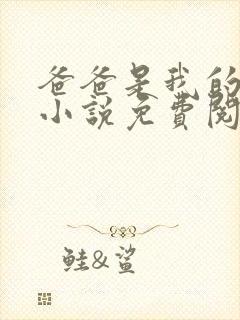 爸爸是我的
小說免費閱
鮭&鯊